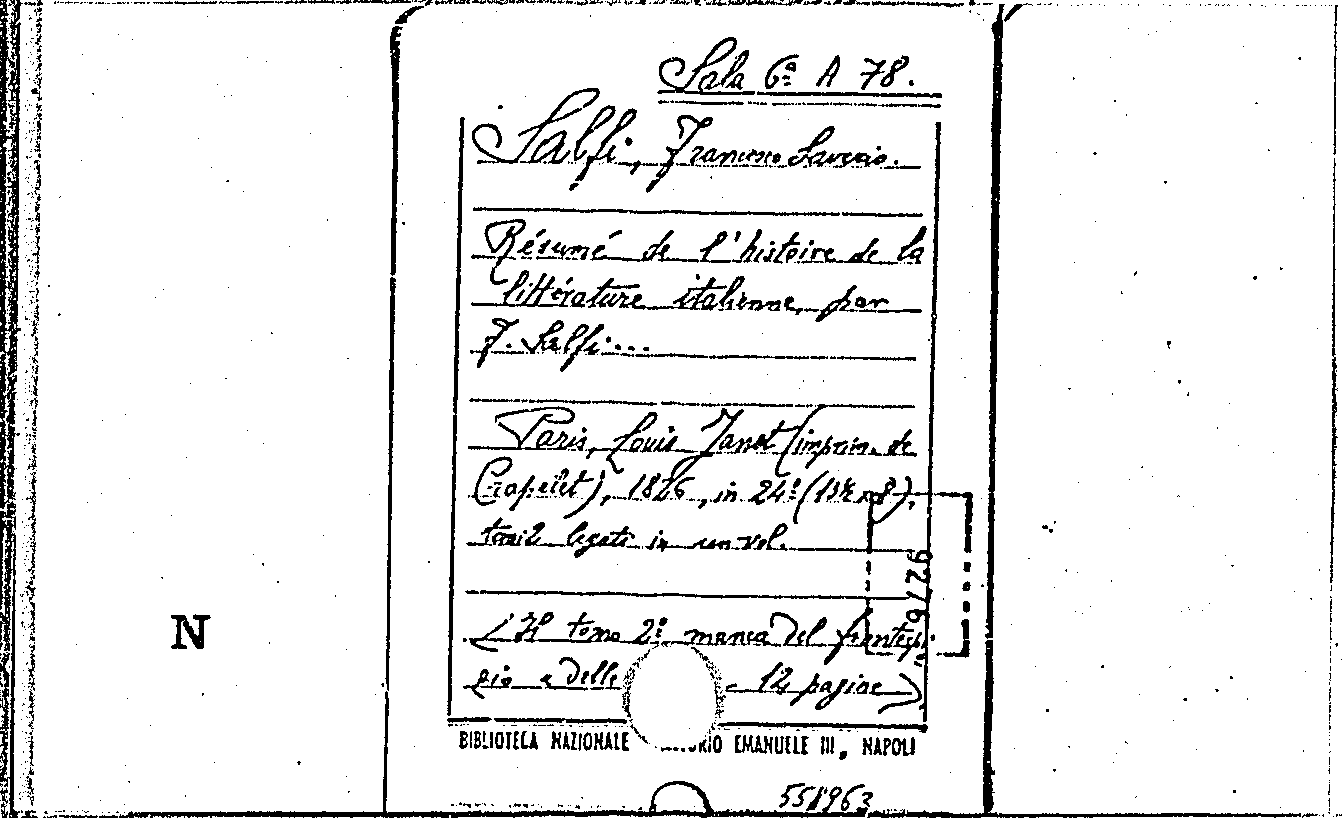 Sala 6ª A 78.
Salfi, Francesco Saverio.
Résumé de l'histoire de la
littérature italienne, par
F. Salfi...
Paris, Louis Janet (imprim. de
Crapelet), 1826, in 24º (13½ x 8),
tomi 2 legati in un vol.
(Il tomo 2º manca del frontespi-
zio e delle 12 pagine)
BIBLIOTECA NAZIONALE EMANUELE III, NAPOLI
551963
N